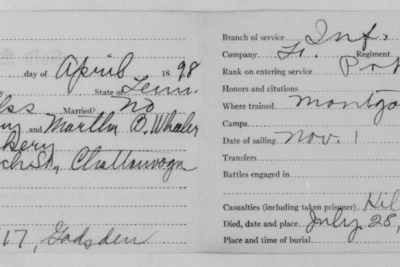 day of April 1898
State of Tenn.
Married? No
and Martha B. Whaler
Chattanooga
17, Gadsden
Branch of service Inf.
Company Regiment
Rank on entering service
Honors and citations
Where trained
Camps
Date of sailing Nov. 1
Transfers
Battles engaged in
Casualties (including taken prisoner)
Died, date and place July 28,
Place and time of burial